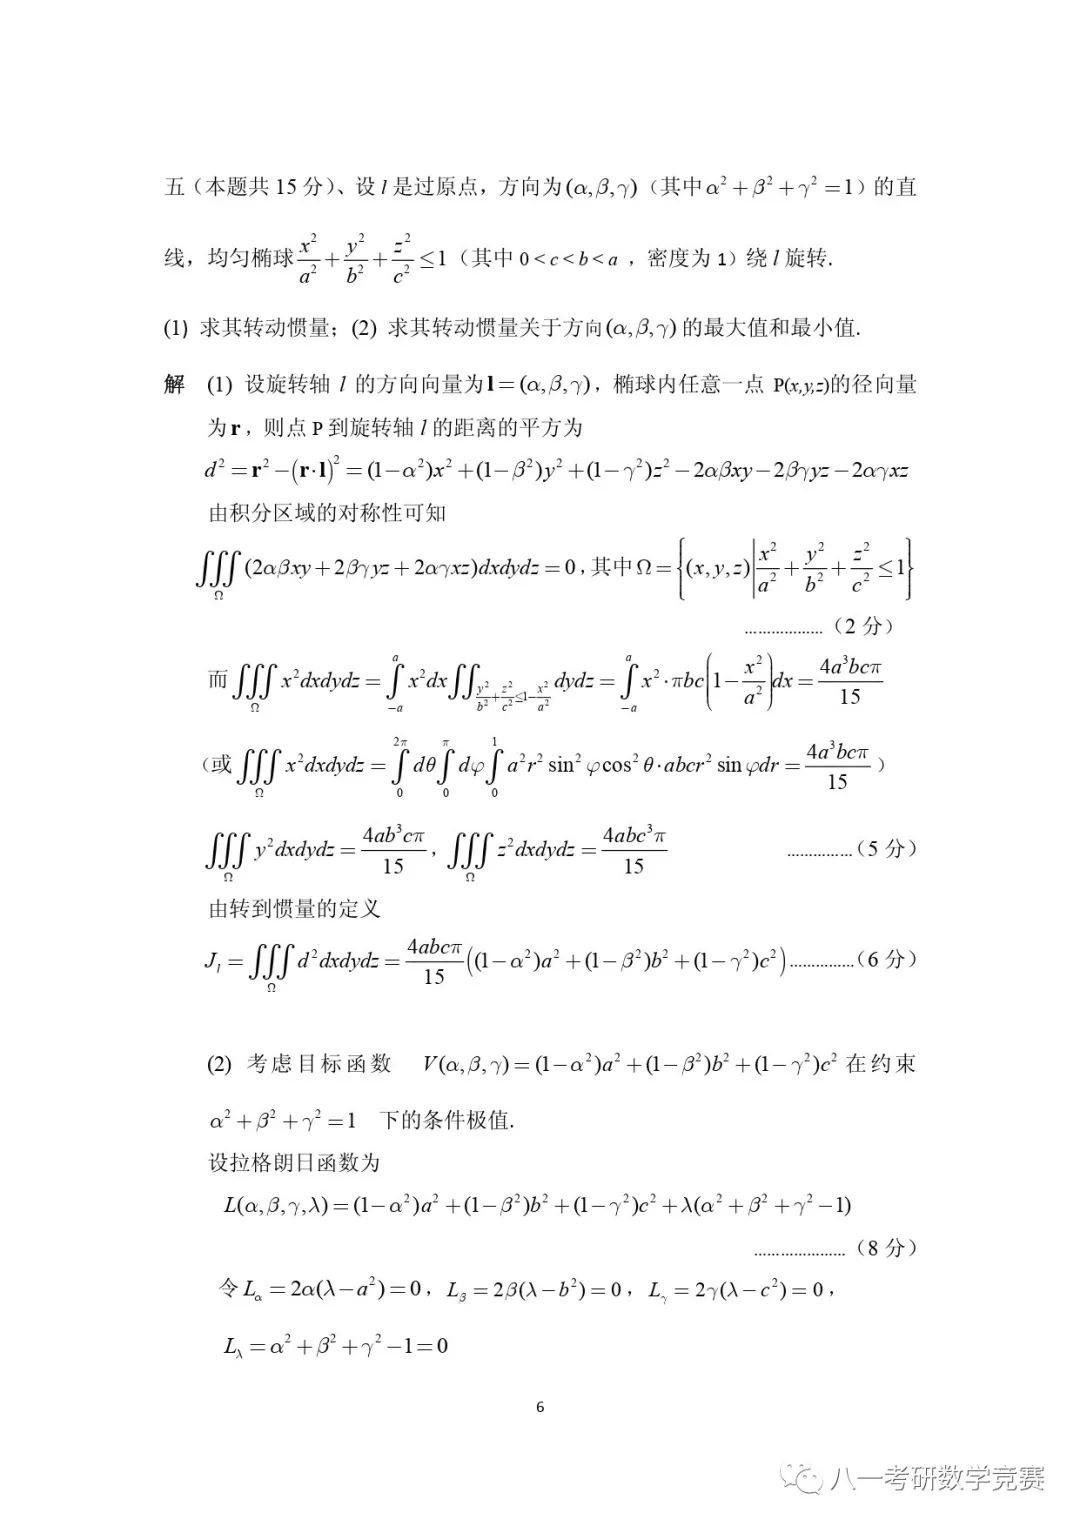 五（本题共 15 分）、设 l 是过原点，方向为 (α,β,γ)（其中 α² + β² + γ² = 1）的直
线，均匀椭球 x²/a² + y²/b² + z²/c² ≤ 1（其中 0 < c < b < a ，密度为 1）绕 l 旋转.
(1) 求其转动惯量；(2) 求其转动惯量关于方向 (α,β,γ) 的最大值和最小值.
解 (1) 设旋转轴 l 的方向向量为 l = (α,β,γ)，椭球内任意一点 P(x,y,z)的径向量
为 r，则点 P 到旋转轴 l 的距离的平方为
d² = r² − (r·l)² = (1−α²)x² + (1−β²)y² + (1−γ²)z² − 2αβxy − 2βγyz − 2αγxz
由积分区域的对称性可知
∭_Ω (2αβxy + 2βγyz + 2αγxz)dxdydz = 0，其中 Ω = {(x,y,z)| x²/a² + y²/b² + z²/c² ≤ 1}
..................（2 分）
而 ∭_Ω x²dxdydz = ∫_{-a}^{a} x²dx ∬_{y²/b²+z²/c²≤1−x²/a²} dydz = ∫_{-a}^{a} x²·πbc(1 − x²/a²)dx = 4a³bcπ/15
（或 ∭_Ω x²dxdydz = ∫_0^{2π} dθ ∫_0^π dφ ∫_0^1 a²r² sin² φcos² θ·abcr² sin φdr = 4a³bcπ/15 ）
∭_Ω y²dxdydz = 4ab³cπ/15， ∭_Ω z²dxdydz = 4abc³π/15 ...............（5 分）
由转到惯量的定义
J_l = ∭_Ω d²dxdydz = 4abcπ/15 ((1−α²)a² + (1−β²)b² + (1−γ²)c²) ...............（6 分）
(2) 考虑目标函数 V(α,β,γ) = (1−α²)a² + (1−β²)b² + (1−γ²)c² 在约束
α² + β² + γ² = 1 下的条件极值.
设拉格朗日函数为
L(α,β,γ,λ) = (1−α²)a² + (1−β²)b² + (1−γ²)c² + λ(α² + β² + γ² −1)
.....................（8 分）
令 L_α = 2α(λ−a²) = 0， L_β = 2β(λ−b²) = 0， L_γ = 2γ(λ−c²) = 0，
L_λ = α² + β² + γ² −1 = 0
6
八一考研数学竞赛